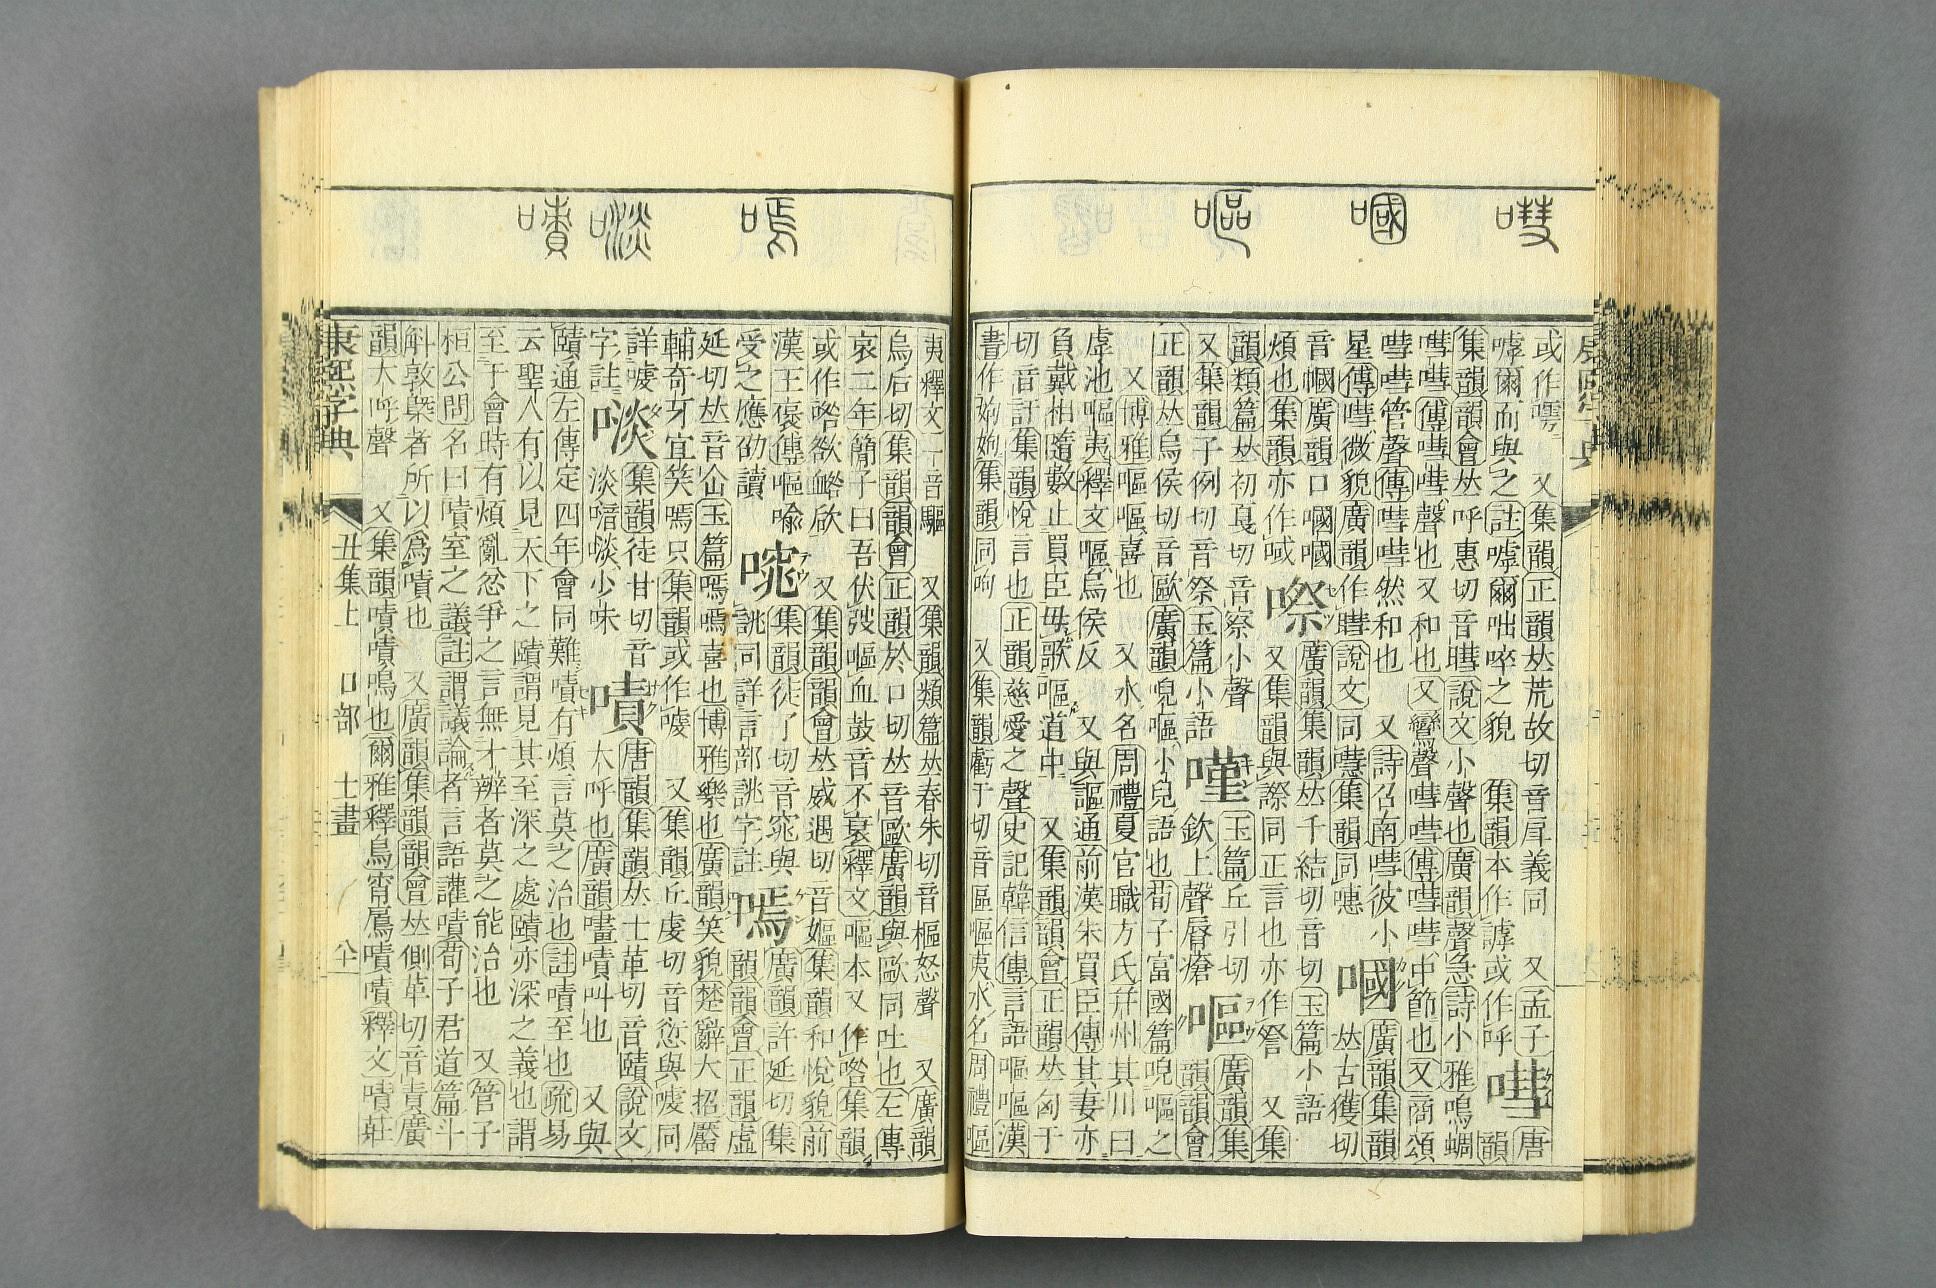 嘒
嘓
嘔
或作嘑 又集韻正韻𠀤荒故切音戽義同 又孟子
嘑爾而與之註嘑爾咄啐之貌 集韻本作謼或作呼
嘒
唐
韻
集韻韻會𠀤呼惠切音暳說文小聲也廣韻聲急詩小雅鳴蜩
嘒嘒傳嘒嘒聲也又和也又鸞聲嘒嘒傳嘒嘒中節也又商頌
嘒嘒管聲傳嘒嘒然和也 又詩召南嘒彼小
星傳嘒微貌廣韻作暳說文同嚖集韻同嘒
嘓
廣韻集韻
𠀤古獲切
音幗廣韻口嘓嘓
煩也集韻亦作㖪
㗫
廣韻集韻𠀤千結切音切玉篇小語
又集韻與詧同正言也亦作詧 又集
韻類篇𠀤初戛切音察小聲
又集韻子例切音祭玉篇小語
㗲
玉篇丘引切
欽上聲脣瘡
嘔
廣韻集
韻韻會
正韻𠀤烏侯切音歐廣韻唲嘔小兒語也荀子富國篇唲嘔之
又博雅嘔嘔喜也 又水名周禮夏官職方氏幷州其川曰
虖池嘔夷釋文嘔烏侯反 又與謳通前漢朱買臣傳其妻亦
負戴相隨數止買臣毋歌嘔道中 又集韻韻會正韻𠀤匈于
切音訏集韻悅言也正韻慈愛之聲史記韓信傳言語嘔嘔漢
書作姁姁集韻同呴 又集韻虧于切音區嘔夷水名周禮嘔
嘕
嘖
夷釋文一音驅 又集韻類篇𠀤春朱切音樞怒聲 又廣韻
烏后切集韻韻會正韻於口切𠀤音歐廣韻與歐同吐也左傳
哀二年簡子曰吾伏弢嘔血鼓音不衰釋文嘔本又作㗖集韻
或作㗖欲衉欨 又集韻韻會𠀤威遇切音嫗集韻和悅貌前
漢王襃傳嘔喻
受之應劭讀
集韻徒了切音窕與
誂同詳言部誂字註
嘕
廣韻許延切集
韻韻會正韻虛
延切𠀤音仚玉篇嘕嘕喜也博雅樂也廣韻笑貌楚辭大招靨
輔奇牙宜笑嘕只集韻或作 又集韻丘虔切音愆與 同
詳
字註
集韻徒甘切音
淡喑 少味
嘖
唐韻集韻𠀤士革切音賾說文
大呼也廣韻嘖叫也 又與
賾通左傳定四年會同難嘖有煩言莫之治也註嘖至也疏易
云聖人有以見天下之賾謂見其至深之處賾亦深之義也謂
至于會時有煩亂忿爭之言無才辨者莫之能治也 又管子
桓公問名曰嘖室之議註謂議論者言語讙嘖荀子君道篇斗
斛敦槩者所以爲嘖也 又廣韻集韻韻會𠀤側革切音責廣
韻大呼聲 又集韻嘖嘖鳴也爾雅釋鳥宵鳸嘖嘖釋文嘖莊
康熙字典 丑集上 口部 十一畫